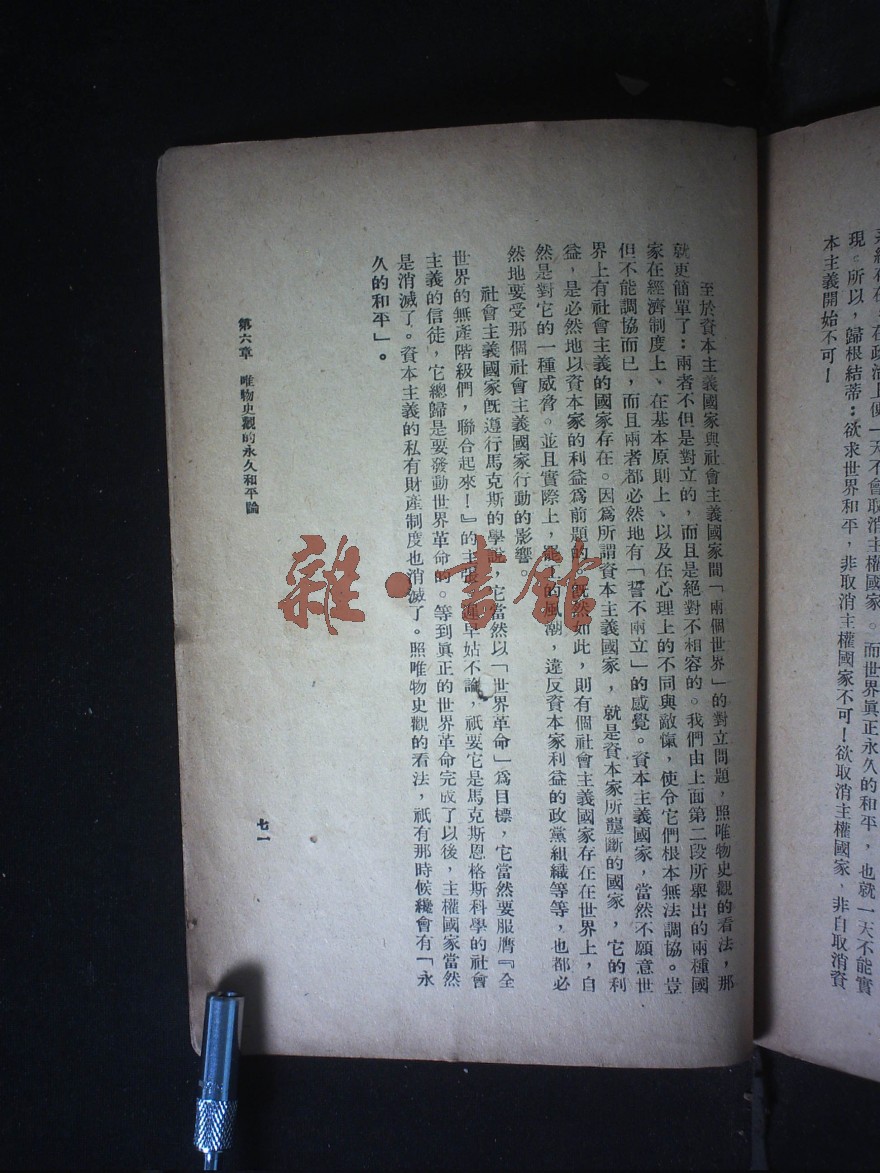 現。所以，歸根結蒂：欲求世界和平，非取消主權國家不可！欲取消主權國家、非自取消資
本主義開始不可！
至於資本主義國家與社會主義國家間「兩個世界」的對立問題，照唯物史觀的看法，那
就更簡單了：兩者不但是對立的，而且是絕對不相容的。我們由上面第二段所舉出的兩種國
家在經濟制度上、在基本原則上、以及在心理上的不同與敵愾，使令它們根本無法調協。豈
但不能調協而已，而且兩者都必然地有「誓不兩立」的感覺。資本主義國家，當然不願意世
界上有社會主義的國家存在。因爲所謂資本主義國家，就是資本家所壟斷的國家，它的利
益，是必然地以資本家的利益爲前題的。既然如此，則有個社會主義國家存在在世界上，自
然是對它的一種威脅。並且實際上，的風潮，違反資本家利益的政黨組織等等，也都必
然地要受那個社會主義國家行動的影響。
社會主義國家旣遵行馬克斯的學說，它當然以「世界革命」爲目標，它當然要服膺『全
世界的無產階級們，聯合起來！』的主張。遲早姑不論，祇要它是馬克斯恩格斯科學的社會
主義的信徒，它總歸是要發動世界革命的。等到眞正的世界革命完成了以後，主權國家當然
是消滅了。資本主義的私有財產制度也消滅了。照唯物史觀的看法，祇有那時候纔會有「永
久的和平」。
第六章　唯物史觀的永久和平論
七一
雜·書館